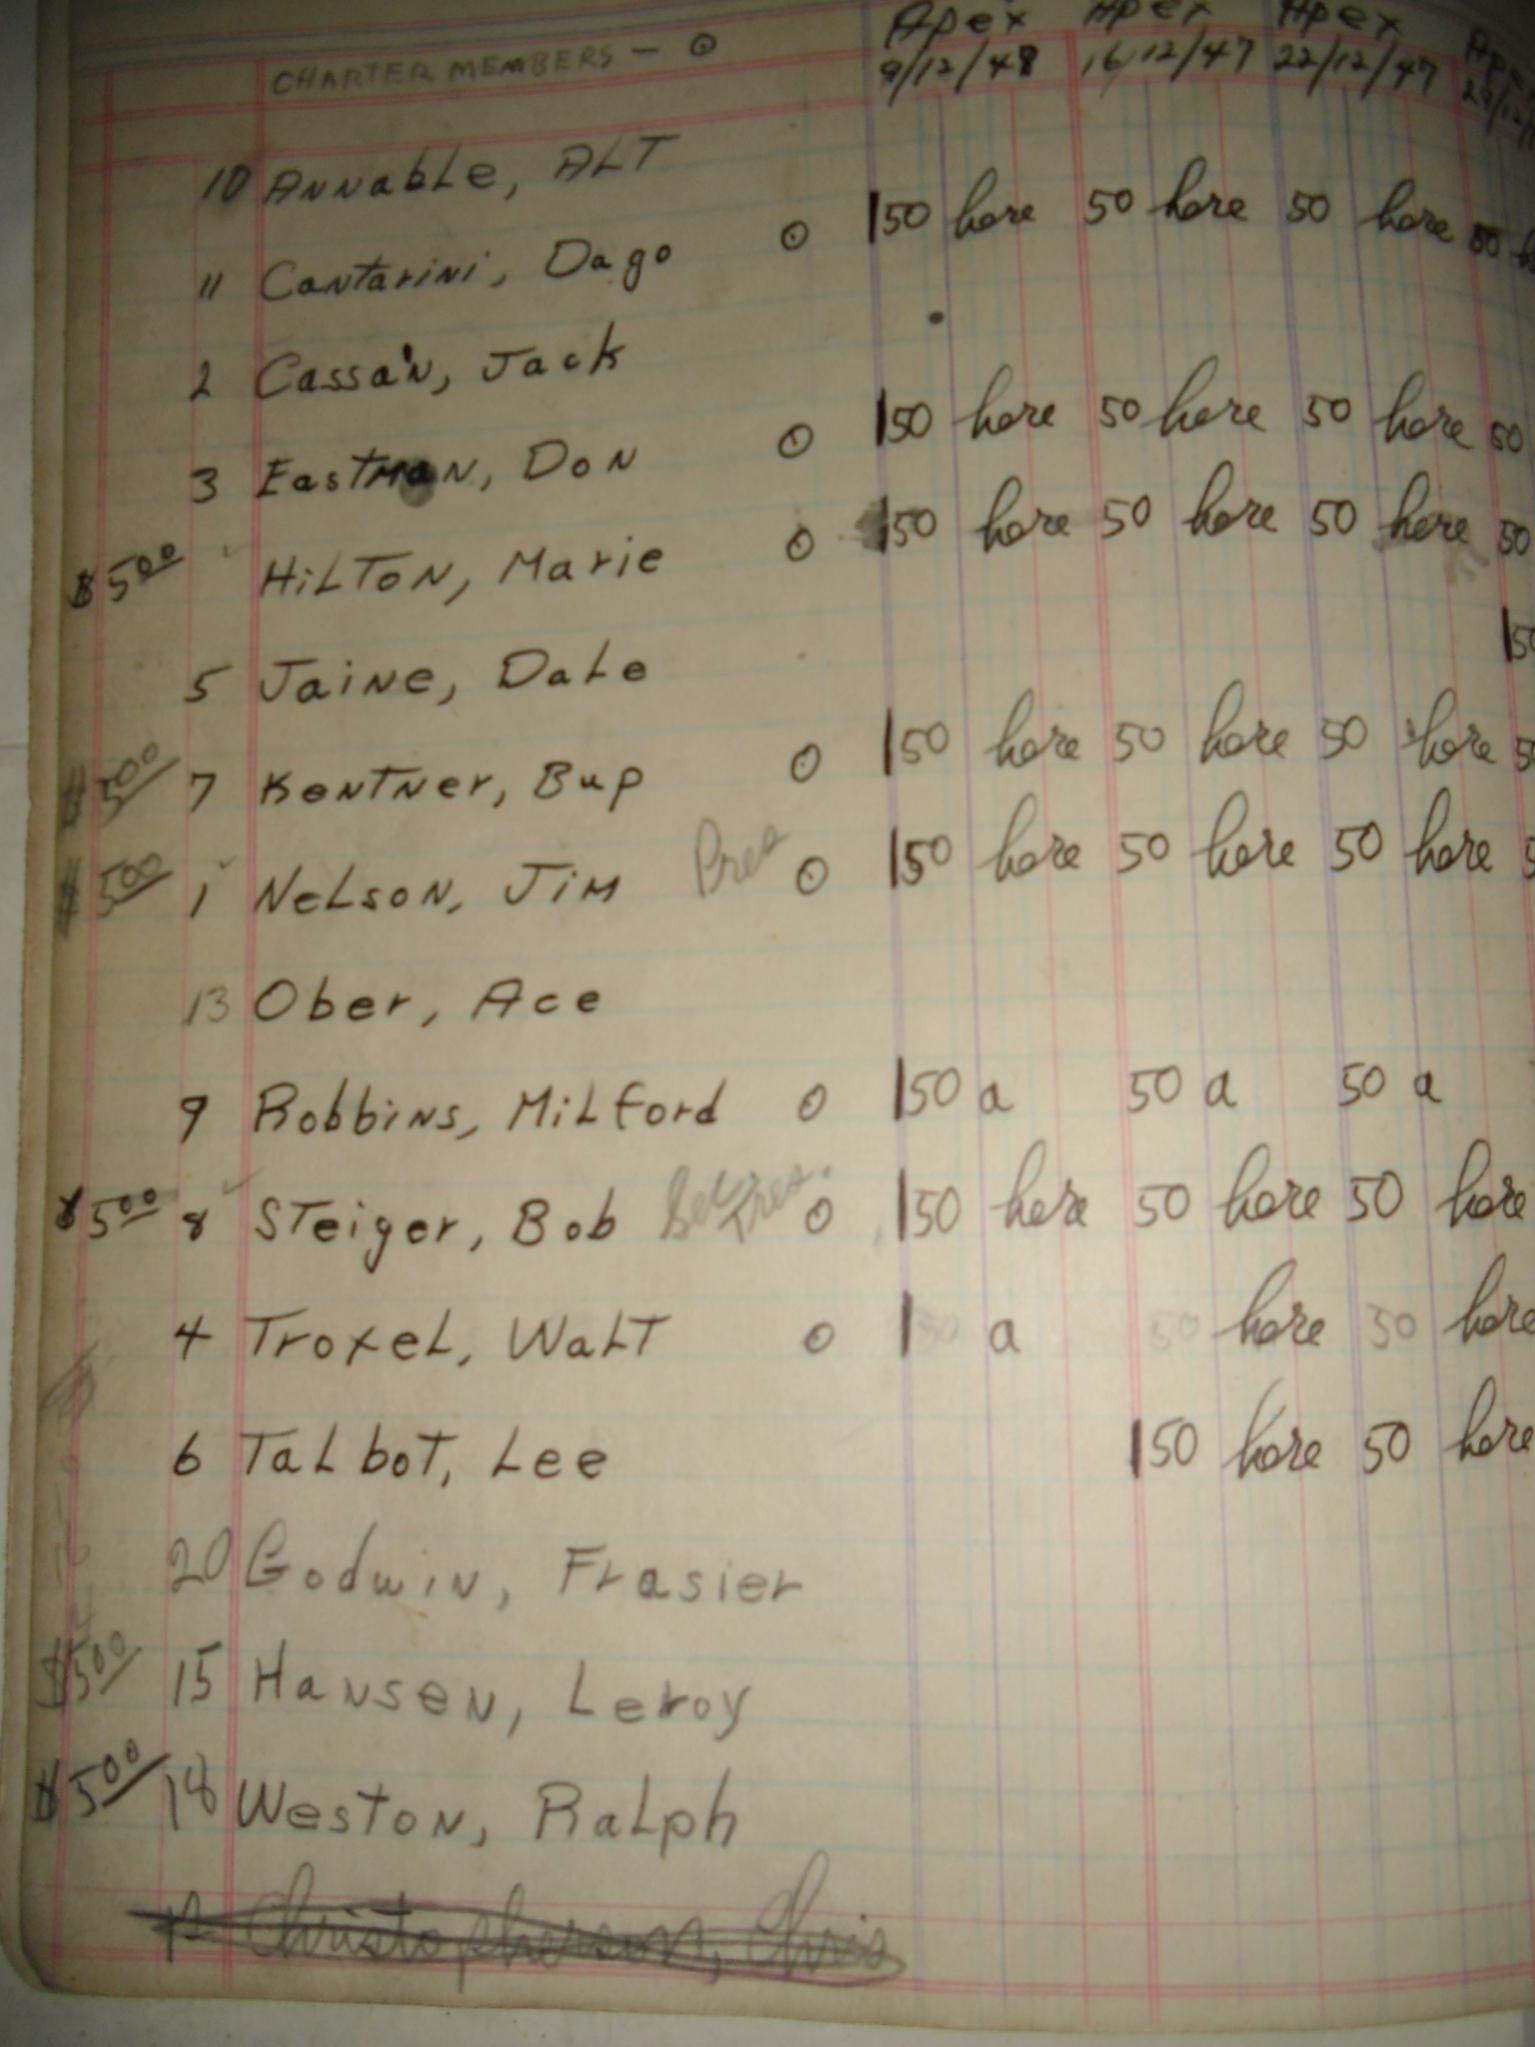 Apex Apex Apex Apex
CHARTER MEMBERS - ⊙ 9/12/48 16/12/47 22/12/47 29/12/
10 Annable, ALT
11 Cantarini, Dago ⊙ 150 here 50 here 50 here 50 h
2 Cassa'n, Jack
3 Eastman, Don ⊙ 150 here 50 here 50 here 50
$5.00 Hilton, Marie ⊙ 150 here 50 here 50 here 50
5 Jaine, Dale 150
$5.00 7 Kentner, Bup ⊙ 150 here 50 here 50 here 50
$5.00 1 Nelson, Jim Pres ⊙ 150 here 50 here 50 here 5
13 Ober, Ace
9 Robbins, Milford ⊙ 150 a 50 a 50 a
$5.00 8 Steiger, Bob Sec Tres. ⊙ 150 here 50 here 50 here
4 Troxel, Walt ⊙ 150 a 50 here 50 here
6 Talbot, Lee 150 here 50 here
20 Godwin, Frasier
$5.00 15 Hansen, Leroy
$5.00 18 Weston, Ralph
Christopherson, Chris